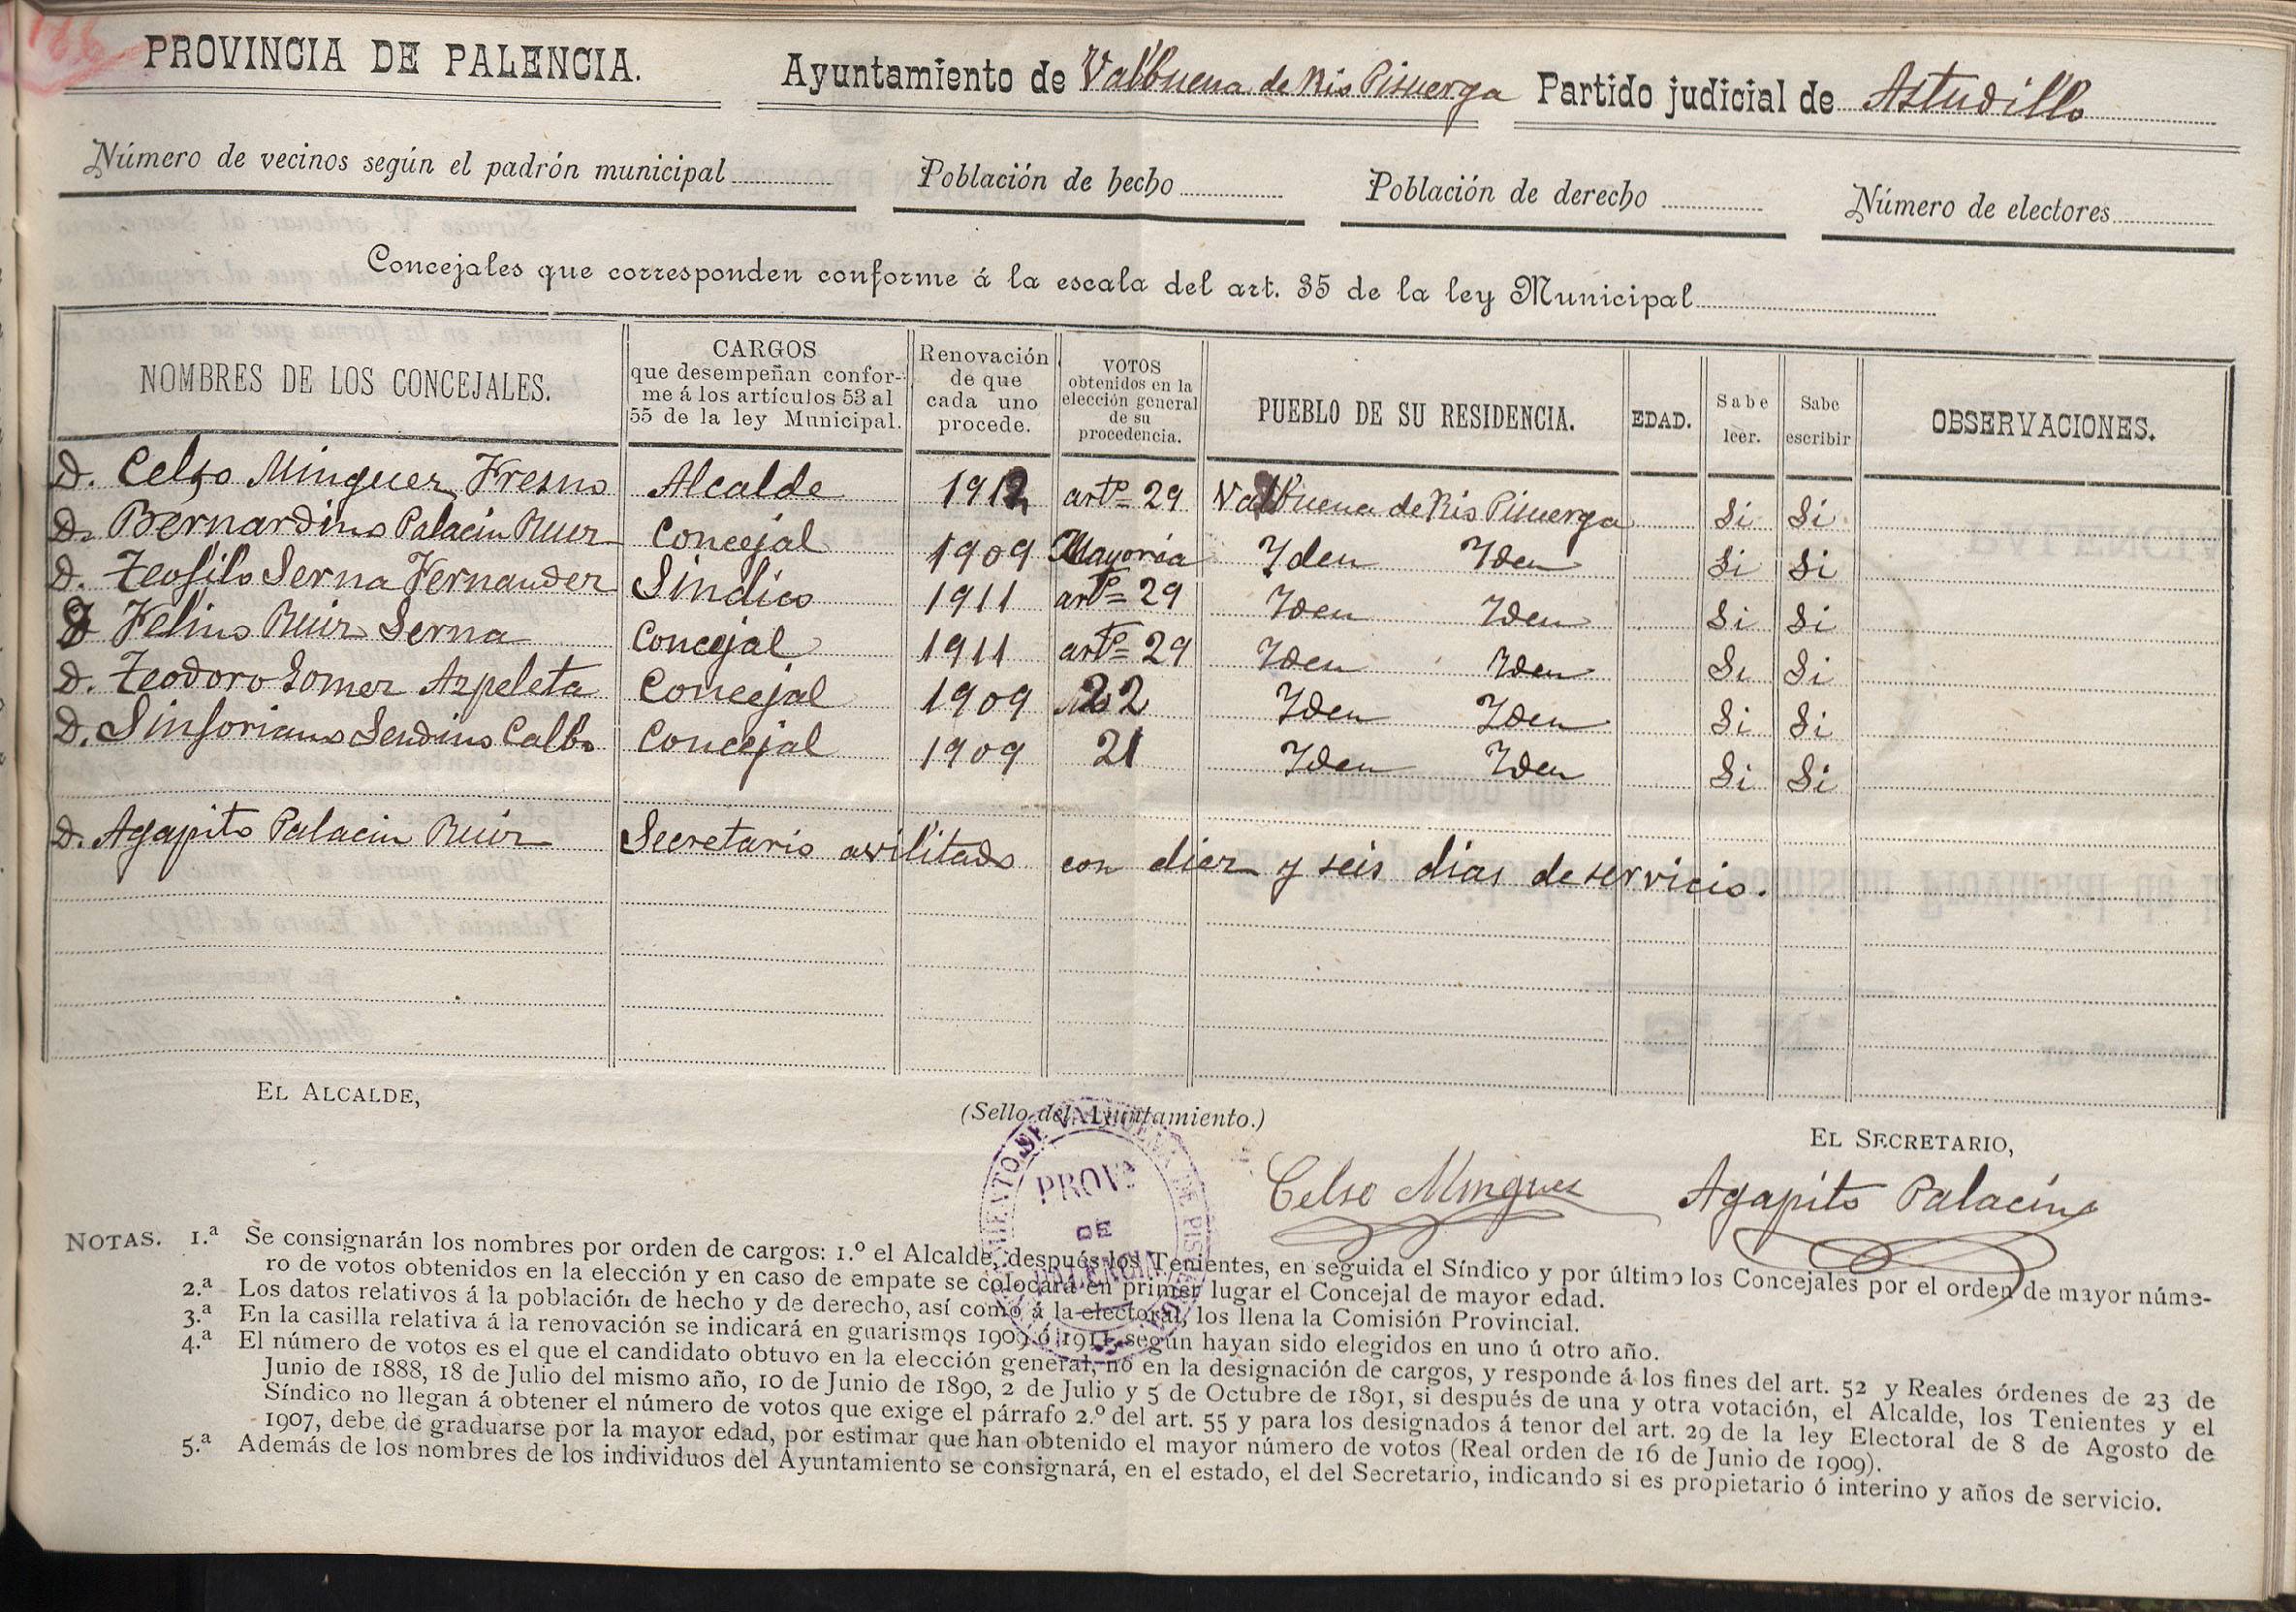 186
PROVINCIA DE PALENCIA.
Ayuntamiento de Valbuena de Rio Pisuerga Partido judicial de Astudillo
Número de vecinos según el padrón municipal
Población de hecho
Población de derecho
Número de electores
Concejales que corresponden conforme á la escala del art. 35 de la ley Municipal
NOMBRES DE LOS CONCEJALES.
CARGOS
que desempeñan confor-
me á los artículos 53 al
55 de la ley Municipal.
Renovación
de que
cada uno
procede.
VOTOS
obtenidos en la
elección general
de su
procedencia.
PUEBLO DE SU RESIDENCIA.
EDAD.
Sabe
leer.
Sabe
escribir
OBSERVACIONES.
D. Celso Minguez Fresno Alcalde 1912 artº 29 Valbuena de Rio Pisuerga Si Si
D. Bernardino Palacin Ruiz Concejal 1909 Mayoria Iden Iden Si Si
D. Teofilo Serna Fernandez Sindico 1911 artº 29 Iden Iden Si Si
D Felino Ruiz Serna Concejal 1911 artº 29 Iden Iden Si Si
D. Teodoro Gomez Azpeleta Concejal 1909 22 Iden Iden Si Si
D. Sinforiano Sendino Calbo Concejal 1909 21 Iden Iden Si Si
D. Agapito Palacin Ruiz Secretario avilitado con diez y seis dias de servicio.
EL ALCALDE,
(Sello del Ayuntamiento.)
EL SECRETARIO,
PROVª
DE
PALENCIA
Celso Minguez
Agapito Palacin
NOTAS. 1.ª Se consignarán los nombres por orden de cargos: 1.º el Alcalde, después los Tenientes, en seguida el Síndico y por último los Concejales por el orden de mayor núme-
ro de votos obtenidos en la elección y en caso de empate se colocará en primer lugar el Concejal de mayor edad.
2.ª Los datos relativos á la población de hecho y de derecho, así como á la electoral, los llena la Comisión Provincial.
3.ª En la casilla relativa á la renovación se indicará en guarismos 1909 ó 1911 según hayan sido elegidos en uno ú otro año.
4.ª El número de votos es el que el candidato obtuvo en la elección general, no en la designación de cargos, y responde á los fines del art. 52 y Reales órdenes de 23 de
Junio de 1888, 18 de Julio del mismo año, 10 de Junio de 1890, 2 de Julio y 5 de Octubre de 1891, si después de una y otra votación, el Alcalde, los Tenientes y el
Síndico no llegan á obtener el número de votos que exige el párrafo 2.º del art. 55 y para los designados á tenor del art. 29 de la ley Electoral de 8 de Agosto de
1907, debe de graduarse por la mayor edad, por estimar que han obtenido el mayor número de votos (Real orden de 16 de Junio de 1909).
5.ª Además de los nombres de los individuos del Ayuntamiento se consignará, en el estado, el del Secretario, indicando si es propietario ó interino y años de servicio.